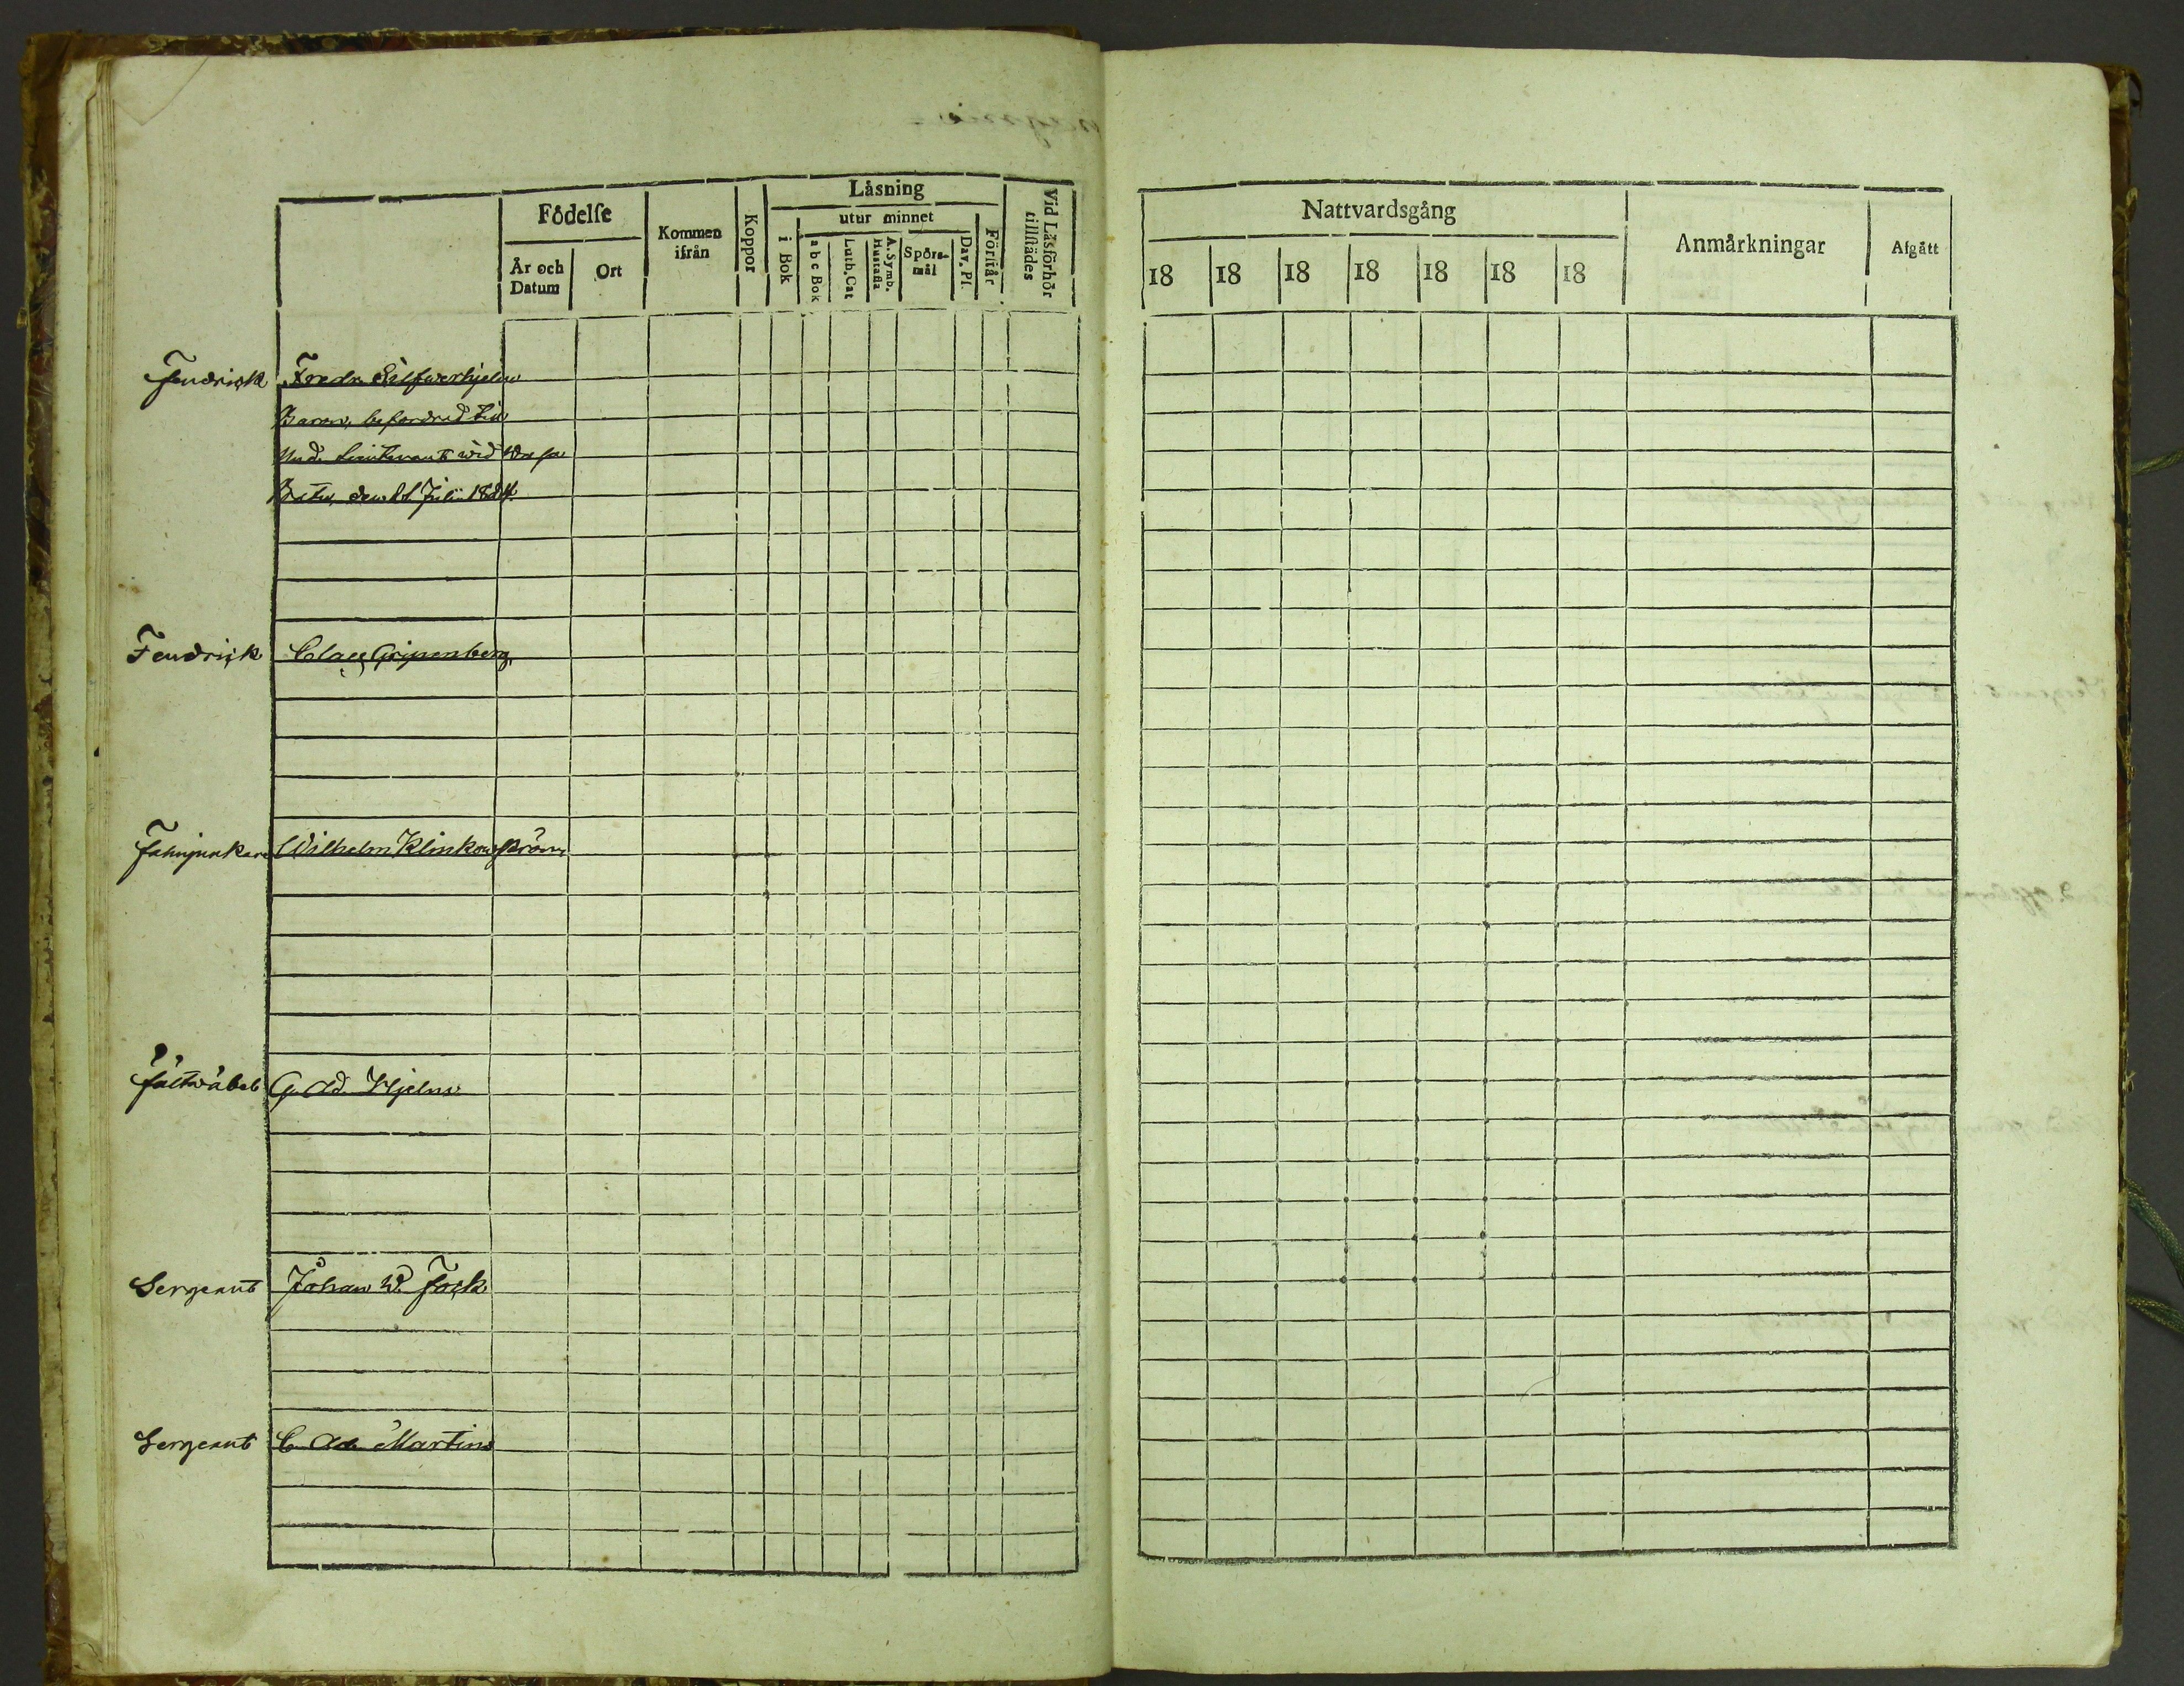 Låsning
Födelse
Kommen ifrån
Koppor
utur minnet
Vid Läsförhör tillstädes
År och Datum
Ort
i Bok
a b c Bok
Luth. Cat
A. Symb. Hustafla
Spörsmål
Dav. Ps.
Förstår
Fendrick Fredr. Silfwerhjelm
Baron, befordrad til
Und. Lieutenant wid Wasa
Batn, den Julii 1824.
Fendrick Claes Gripenberg
Fahnjunkare Wilhelm Klinkowström
Fältwäbel G. Ad. Hjelm
Sergeant Johan W. Fock
Sergeant C. Ad. Martins
Nattvardsgång
Anmärkningar
Afgått
18 18 18 18 18 18 18